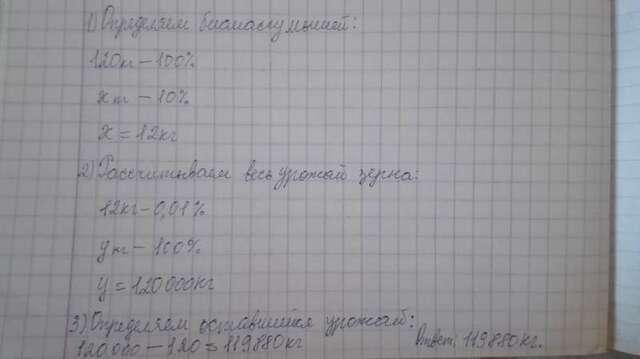 1) Определяем биомассу мышей:
120кг – 100%
х кг – 10%
х = 12кг
2) Рассчитываем весь урожай зерна:
12кг – 0,01%
у кг – 100%
у = 120000кг
3) Определяем оставшийся урожай:
120.000 – 120 = 119880 кг Ответ: 119880 кг.